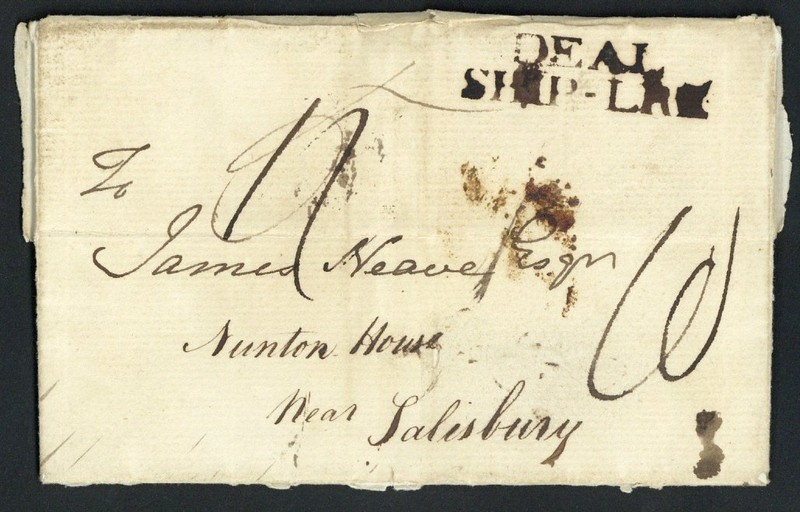 DEAL
SHIP-LRE
To
James Neave Esqr
Nunton House
Near Salisbury